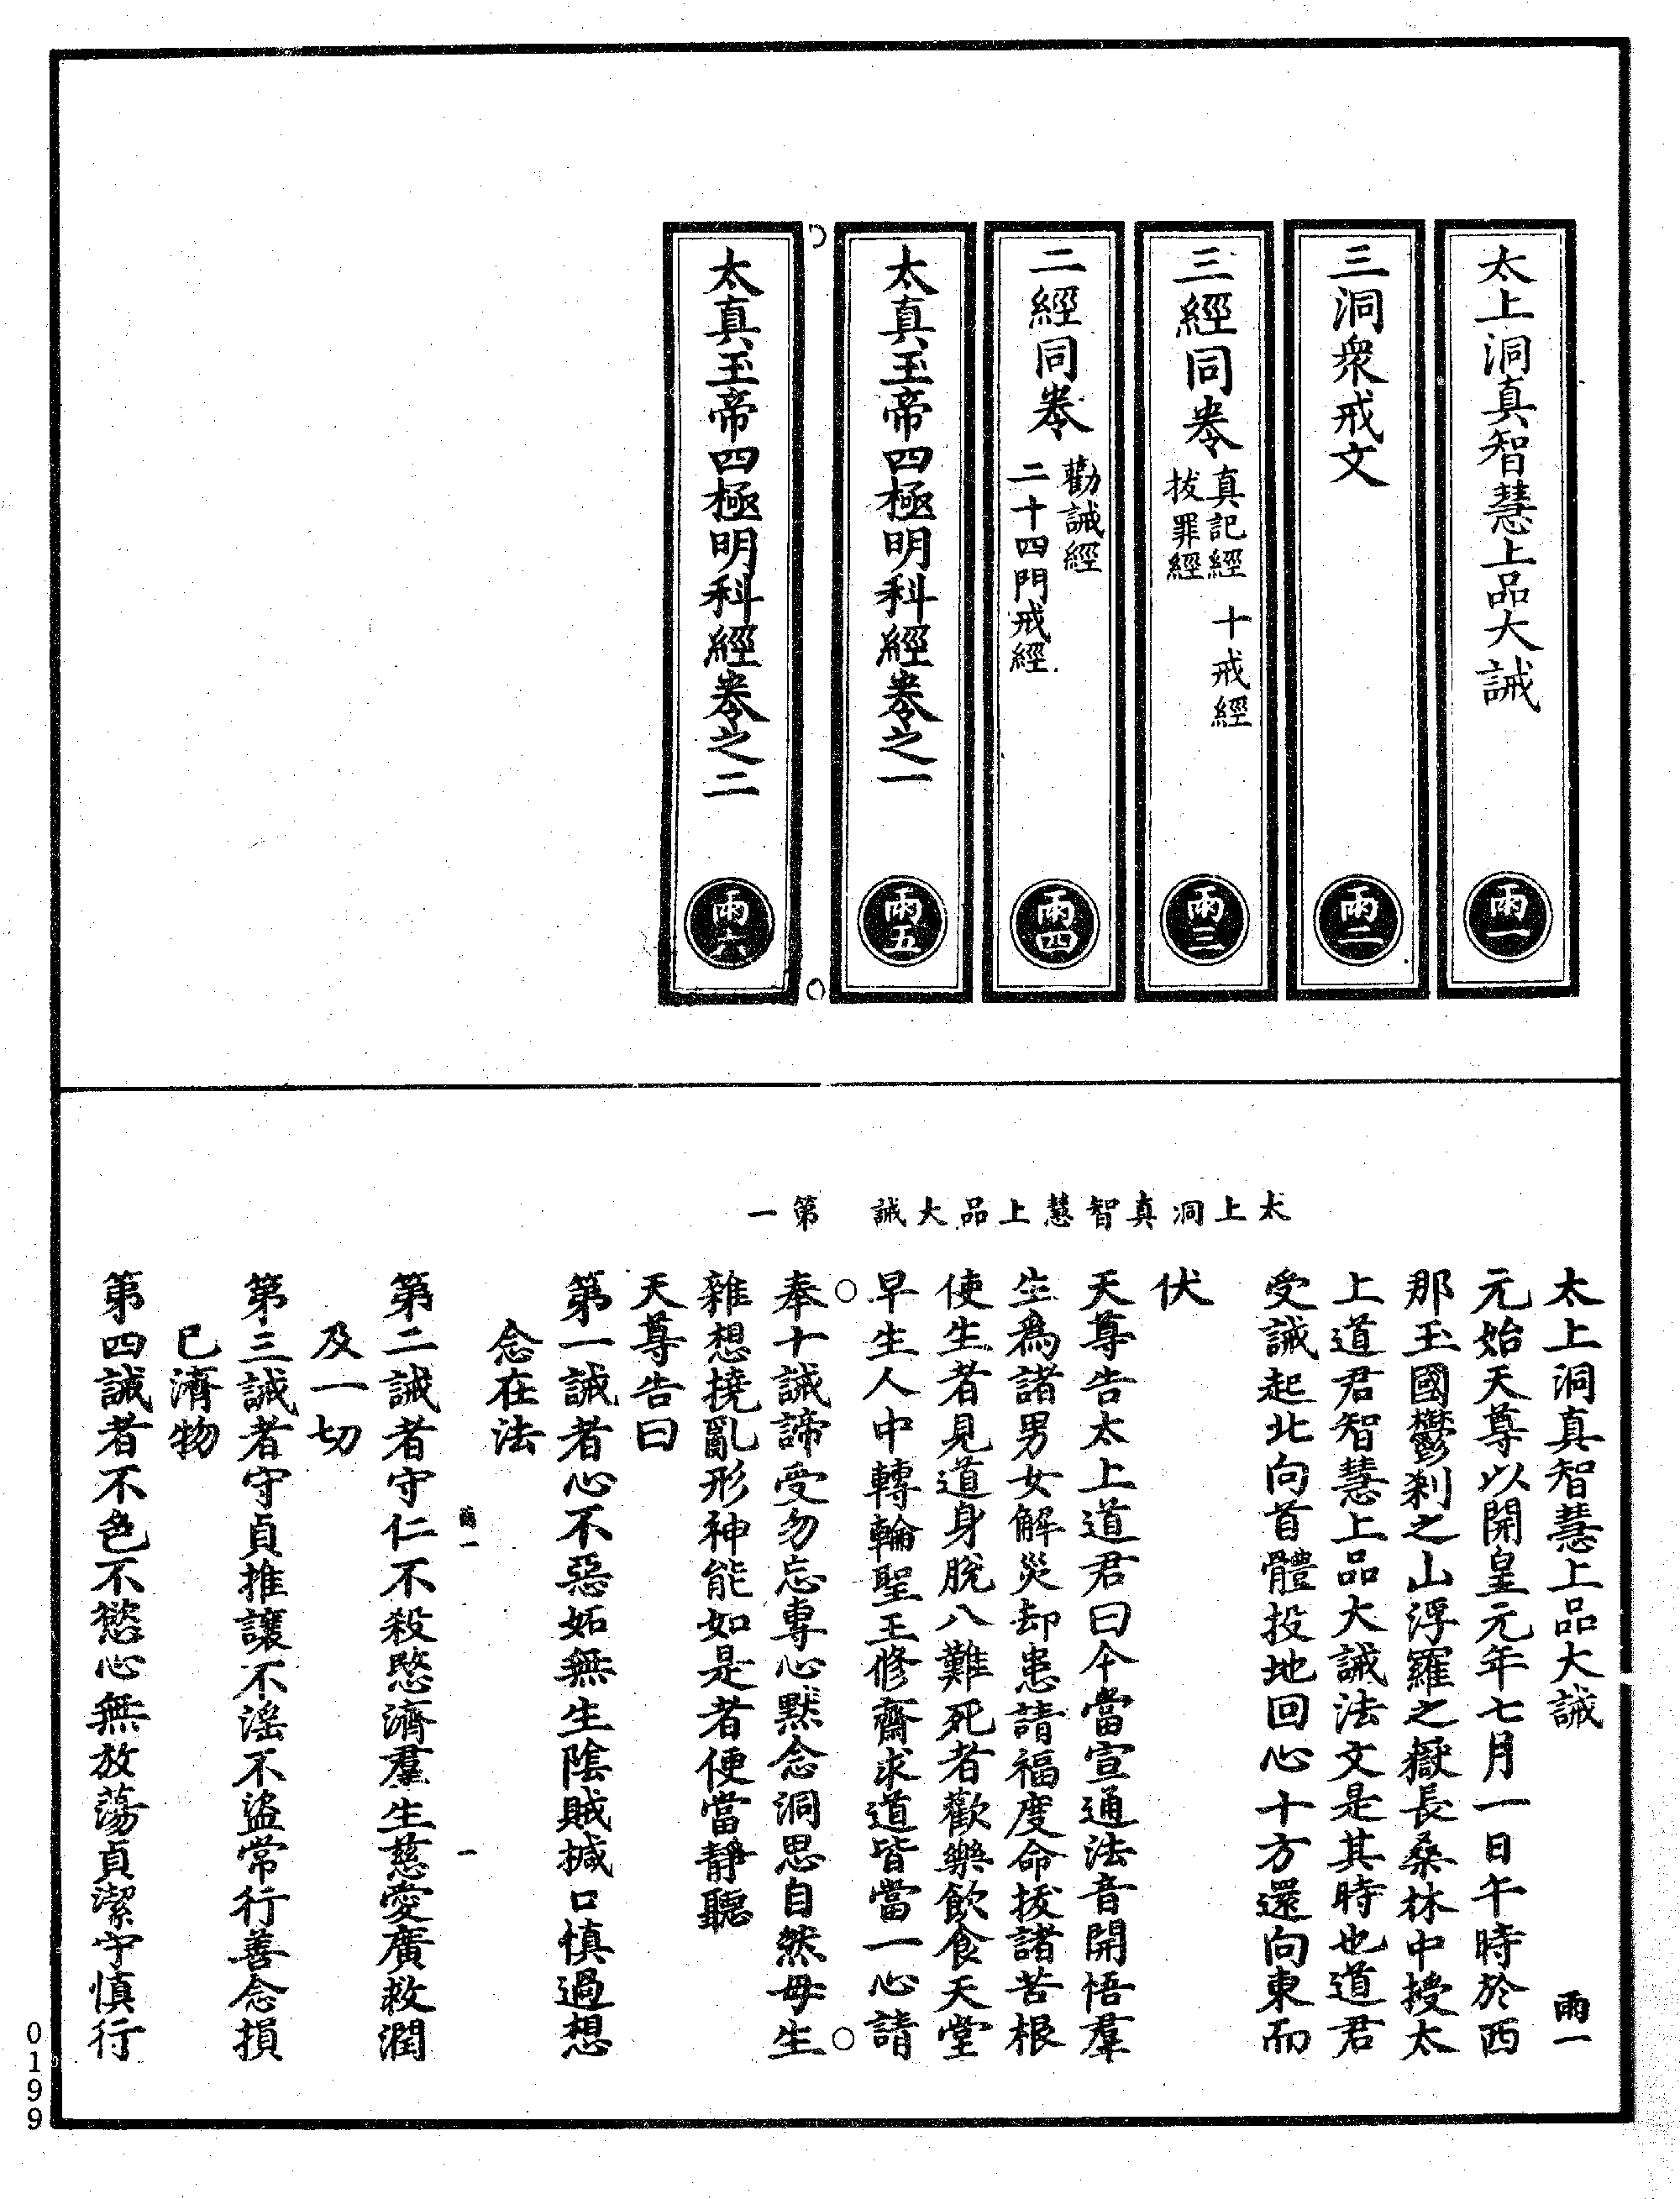 太上洞真智慧上品大誡
雨一
三洞衆戒文
雨二
三經同卷
真記經
拔罪經
十戒經
雨三
二經同卷
勸誡經
二十四門戒經
雨四
太真玉帝四極明科經卷之一
雨五
太真玉帝四極明科經卷之二
雨六
太上洞真智慧上品大誡 第一
太上洞真智慧上品大誡 雨一
元始天尊以開皇元年七月一日午時於西
那玉國鬱刹之山浮羅之嶽長桑林中授太
上道君智慧上品大誡法文是其時也道君
受誡起北向首體投地回心十方還向東而
伏
天尊告太上道君曰今當宣通法音開悟羣
生爲諸男女解災却患請福度命拔諸苦根
使生者見道身脫八難死者歡樂飲食天堂
早生人中轉輪聖王修齋求道皆當一心請
奉十誡諦受勿忘專心默念洞思自然毋生
雜想撓亂形神能如是者便當靜聽
天尊告曰
第一誡者心不惡妬無生陰賊搣口慎過想
念在法
雨一 一
第二誡者守仁不殺愍濟羣生慈愛廣救潤
及一切
第三誡者守貞推讓不淫不盜常行善念損
已濟物
第四誡者不色不慾心無放蕩貞潔守慎行
0199